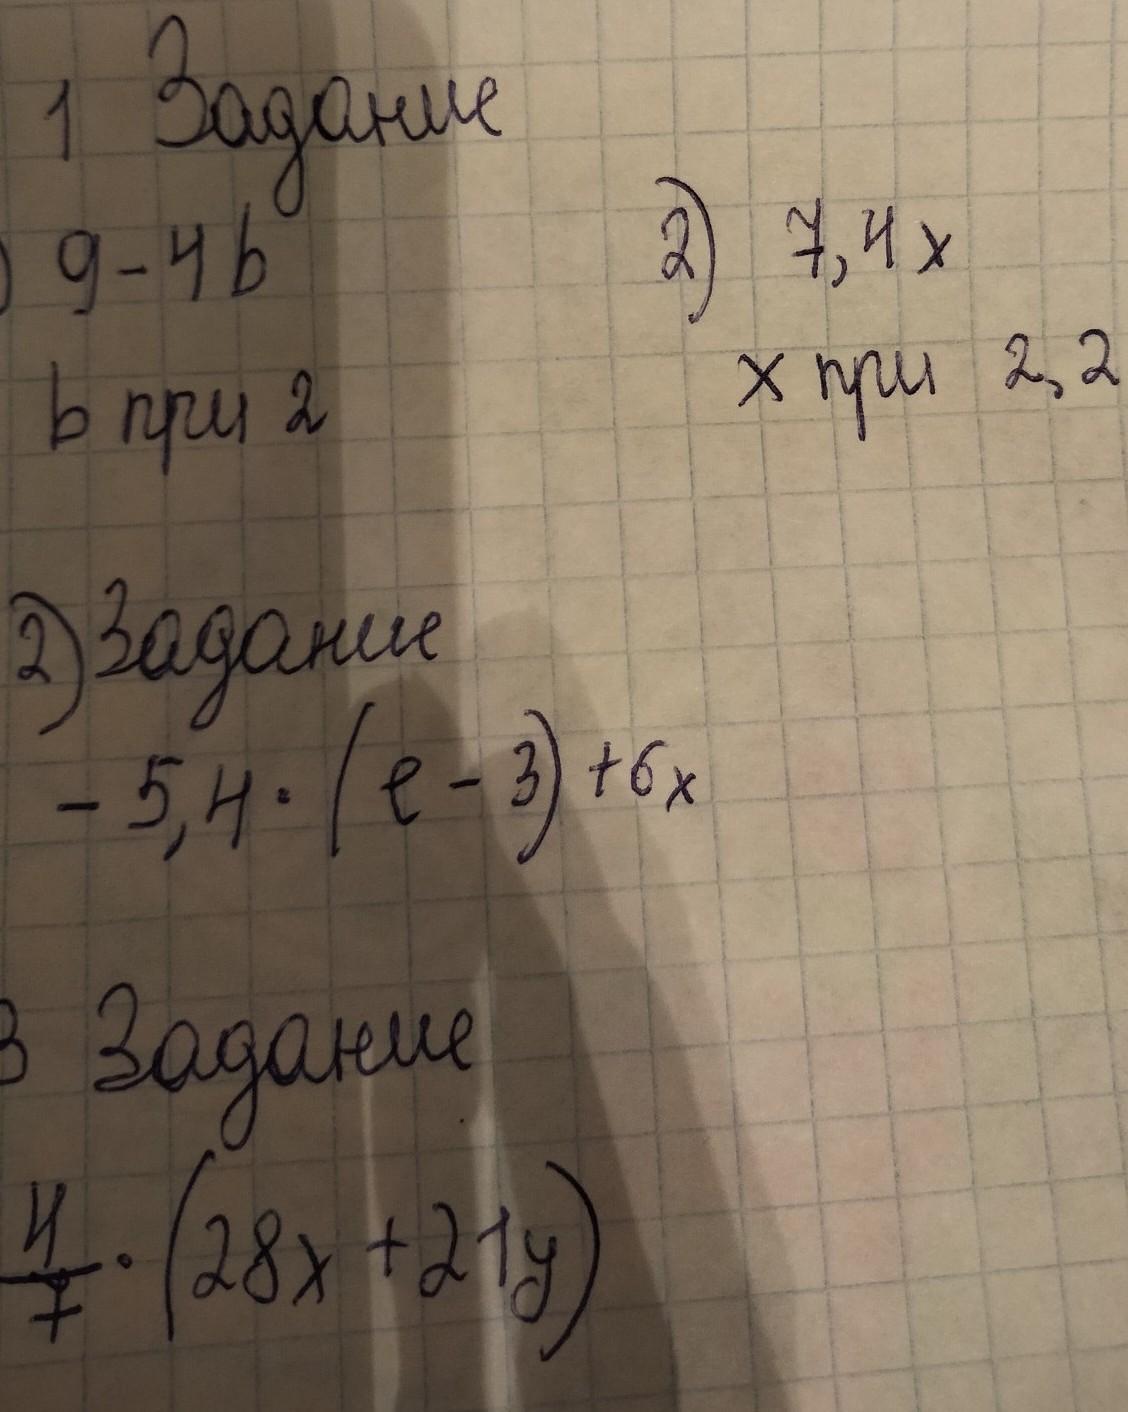 1 Задание
) 9-4b
2) 7,4x
b при 2
x при 2,2
2) Задание
- 5,4 · (e - 3) + 6x
3 Задание
4/7 · (28x + 21y)